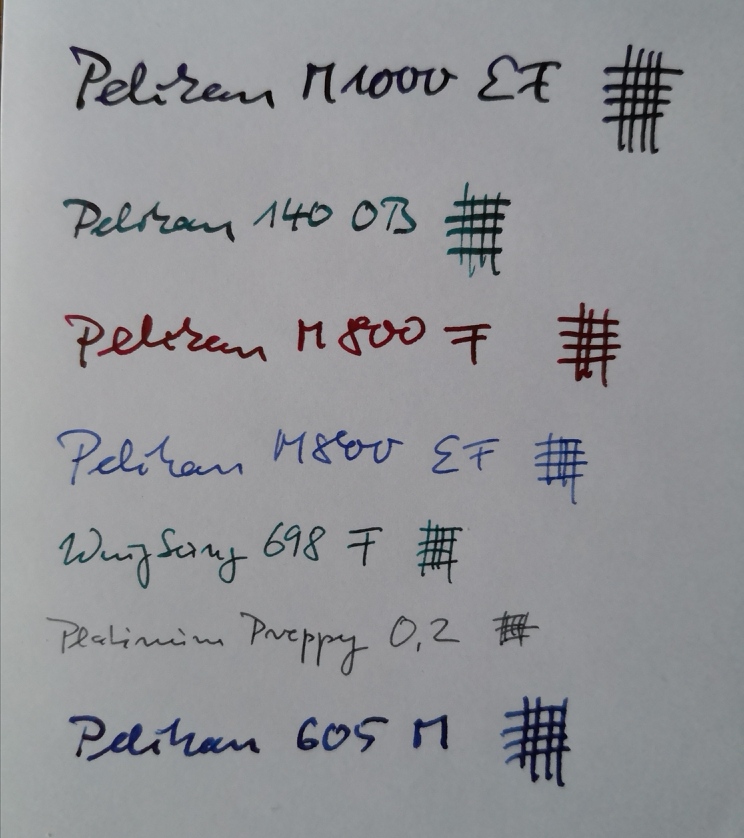 Pelikan M1000 EF
Pelikan 140 OB
Pelikan M800 F
Pelikan M800 EF
WingSung 698 F
Platinium Preppy 0,2
Pelikan 605 M